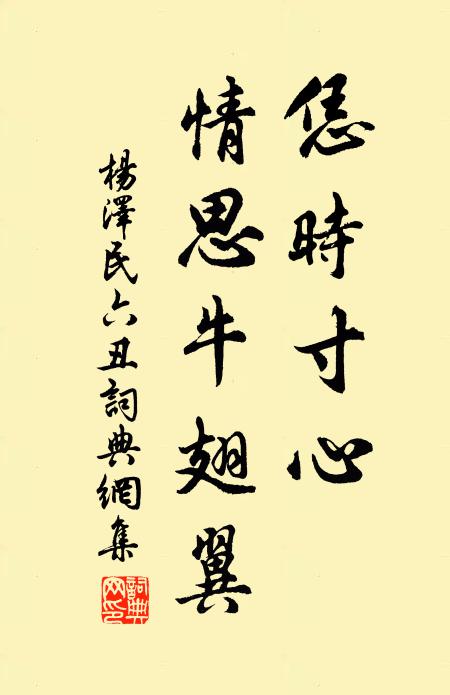 恁時寸心
情思牛翅翼
楊澤民六丑詞典網集
詞典
网印